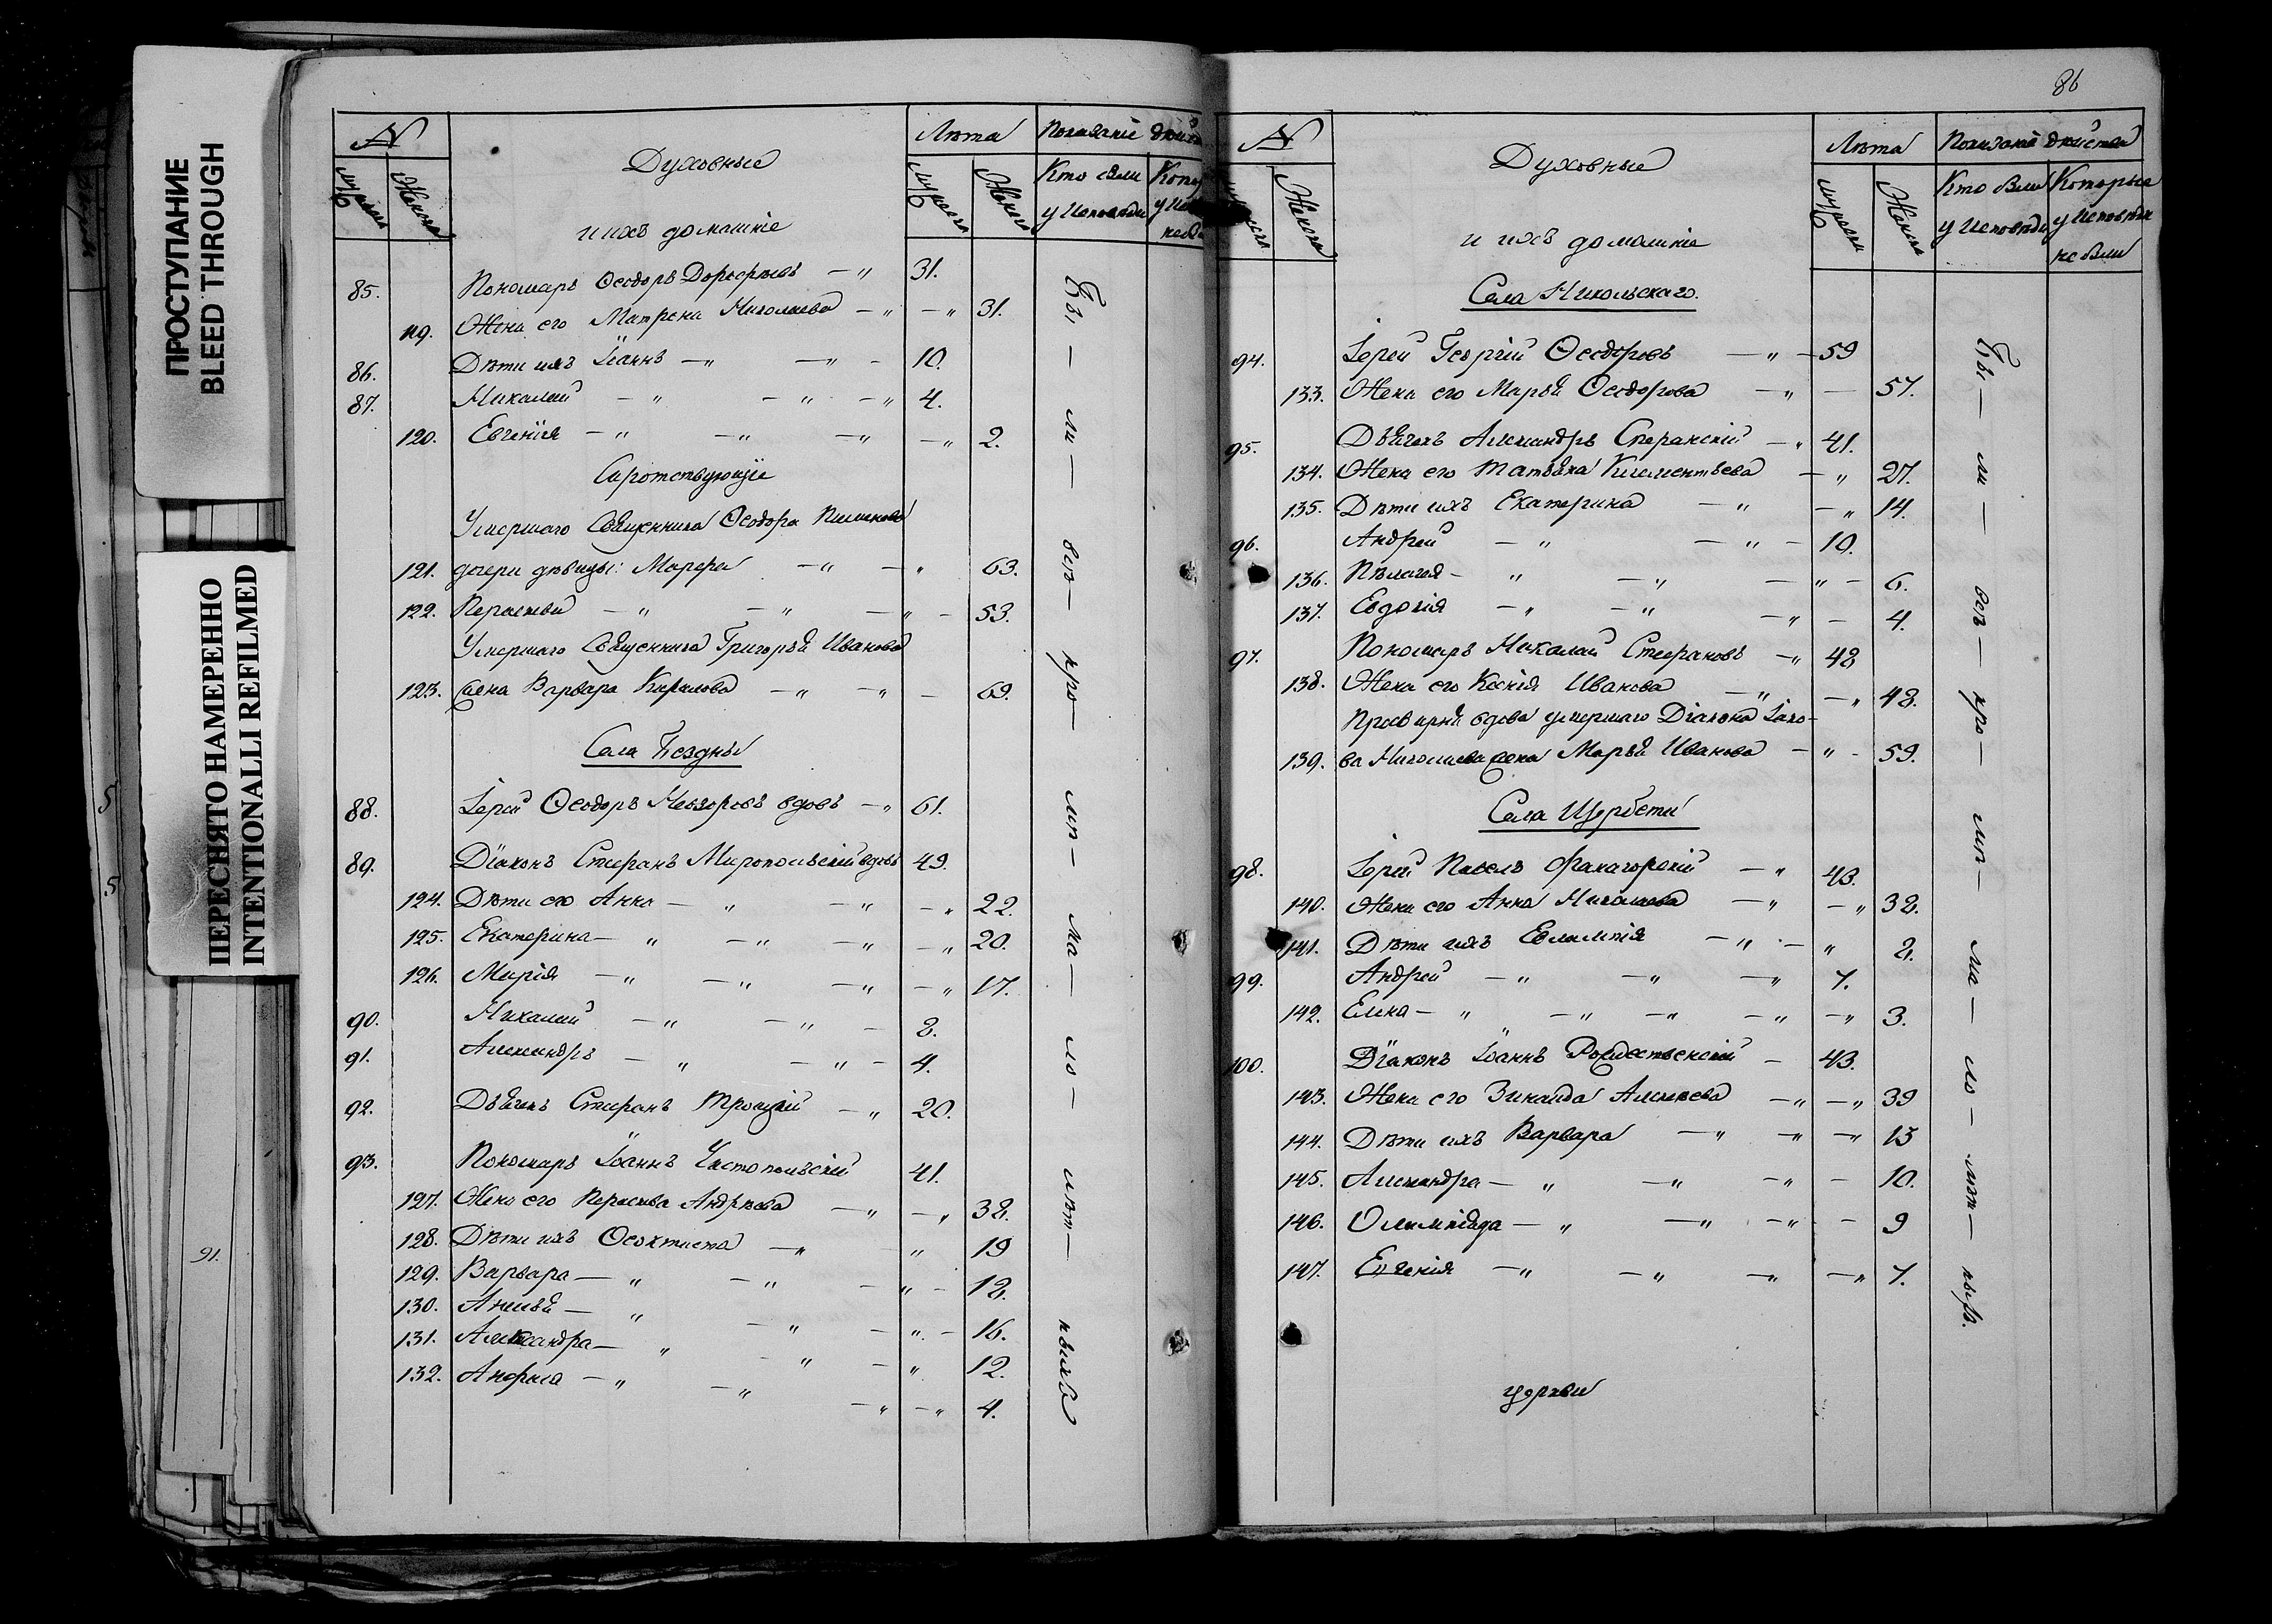 ПРОСТУПАНИЕ
BLEED THROUGH
ПЕРЕСНЯТО НАМЕРЕННО
INTENTIONALLI REFILMED
5
5
91.
№ Духовные Лѣта Показаніе
мужеска женска и ихъ домашніе мужеска женска Кто были у Исповѣди
85. Пономарь Ѳеодоръ Дорофѣевъ — " 31.
119. Жена его Матрена Николаева — " — " 31.
86. Дѣти ихъ Іоаннъ — " — " — 10.
87. Николай — " — " — " 4.
120. Евгенія — " — " — " — " 2.
Сиротствующіе
Умершаго Священника Ѳеодора Пименова
121. дочери дѣвицы: Марфа — " — " 63.
122. Параскева — " — " — " — 53.
Умершаго Священника Григорья Иванова
123. жена Варвара Кирилова — " — " — 69.
Села Бездны
88. Іерей Ѳеодоръ Невзоровъ вдовъ — " 61.
89. Діаконъ Стефанъ Миропольскій вдовъ 49.
124. Дѣти его Анна — " — " — " 22.
125. Екатерина — " — " — " — " 20.
126. Марія — " — " — " — " 17.
90. Николай — " — " — 8.
91. Александръ — " — " — 4.
92. Дьячекъ Стефанъ Троицкій — " 20.
93. Пономарь Іоаннъ Чистопольскій 41.
127. Жена его Параскева Андрѣева — " — " 38.
128. Дѣти ихъ Ѳеоктиста — " " 19
129. Варвара — " — " — " — 18.
130. Анисья — " — " — " — 16.
131. Александра — " — " — " 12.
132. Анфиса — " — " — " — " 4.
Бы — ли — всѣ — кро — мѣ — ма — ло — лѣт — ныхъ
86
№ Духовные Лѣта Показаніе дѣйства
женска и ихъ домашніе мужеска женска Кто были у Исповѣди Которые у Исповѣди не были
Села Никольскаго.
94. Іерей Георгій Ѳеодоровъ — " — 59
133. Жена его Марья Ѳеодорова — " — 57.
95. Дьячекъ Александръ Сперанскій — " 41.
134. Жена его Татьяна Климентьева — " 27.
135. Дѣти ихъ Екатерина — " — " 14.
96. Андрей — " — " — 10.
136. Пелагея — " — " — " — 6.
137. Евдокія — " — " — " — 4.
97. Пономарь Николай Стефановъ — " 48
138. Жена его Ксенія Иванова — " — " 48.
Просвирня вдова умершаго Діакона Іако-
139. ва Николаева жена Марья Иванова — " — 59.
Села Щербети
98. Іерей Павелъ Фанагорскій — " 43.
140. Жена его Анна Николаева — " — " 38.
141. Дѣти ихъ Евлампія — " — " 2.
99. Андрей — " — " — " 7.
142. Елена — " — " — " — " — " 3.
100. Діаконъ Іоаннъ Рождественскій — 43.
143. Жена его Зинаида Алексѣева — " — " 39
144. Дѣти ихъ Варвара — " — " — " 13
145. Александра — " — " — " — 10.
146. Олимпіада — " — " — " — 9
147. Евгенія — " — " — " — " 7.
Бы — ли — всѣ — кро — мѣ — ма — ло — лѣт — ныхъ.
церкви